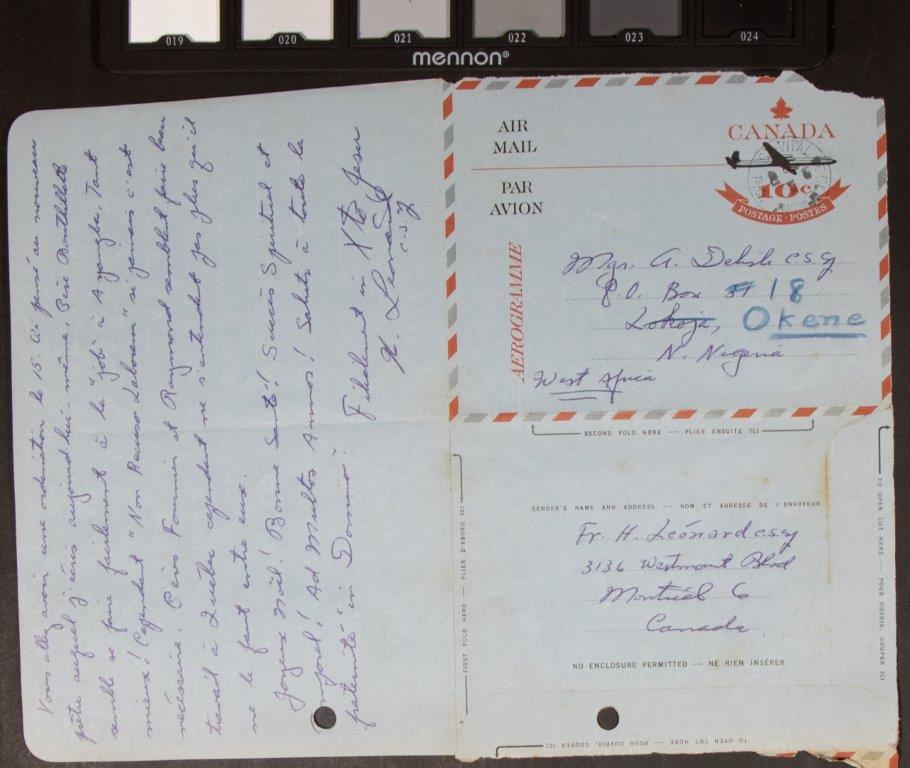 019 020 021 022 023 024
mennon®
AIR
MAIL
PAR
AVION
AEROGRAMME
CANADA
10c
POSTAGE · POSTES
Mgr. A. Delisle c.s.g
P.O. Box 18
Lokoja, Okene
N. Nigeria
West Africa
SECOND FOLD HERE — PLIER ENSUITE ICI
SENDER'S NAME AND ADDRESS — NOM ET ADRESSE DE L'ENVOYEUR
Fr. H. Léonard c.s.g
3136 Westmount Blvd
Montréal 6
Canada
NO ENCLOSURE PERMITTED — NE RIEN INSÉRER
FIRST FOLD HERE — PLIER D'ABORD ICI
TO OPEN CUT HERE — POUR OUVRIR, COUPER ICI
TO OPEN CUT HERE — POUR OUVRIR, COUPER ICI
Vous allez avoir une ordination le 15. Ai pensé au nouveau
prêtre auquel j'écris aujourd'hui même. Père
semble se faire facilement à la "job" à Ayangba. Tant
mieux! Cependant "Non Recuso Laborem" si jamais c'est
nécessaire. Pères Fournier et Raymond semblent faire bon
travail à Québec cependant ne s'entendent pas plus qu'il
ne le faut entre eux.
Joyeux Noël! Bonne Santé! Succès Spirituel et
! Ad Multos Annos! Saluts à toute la
fraternité "in Domino".
Filialement in Xto Jesu
H. Léonard
c.s.g